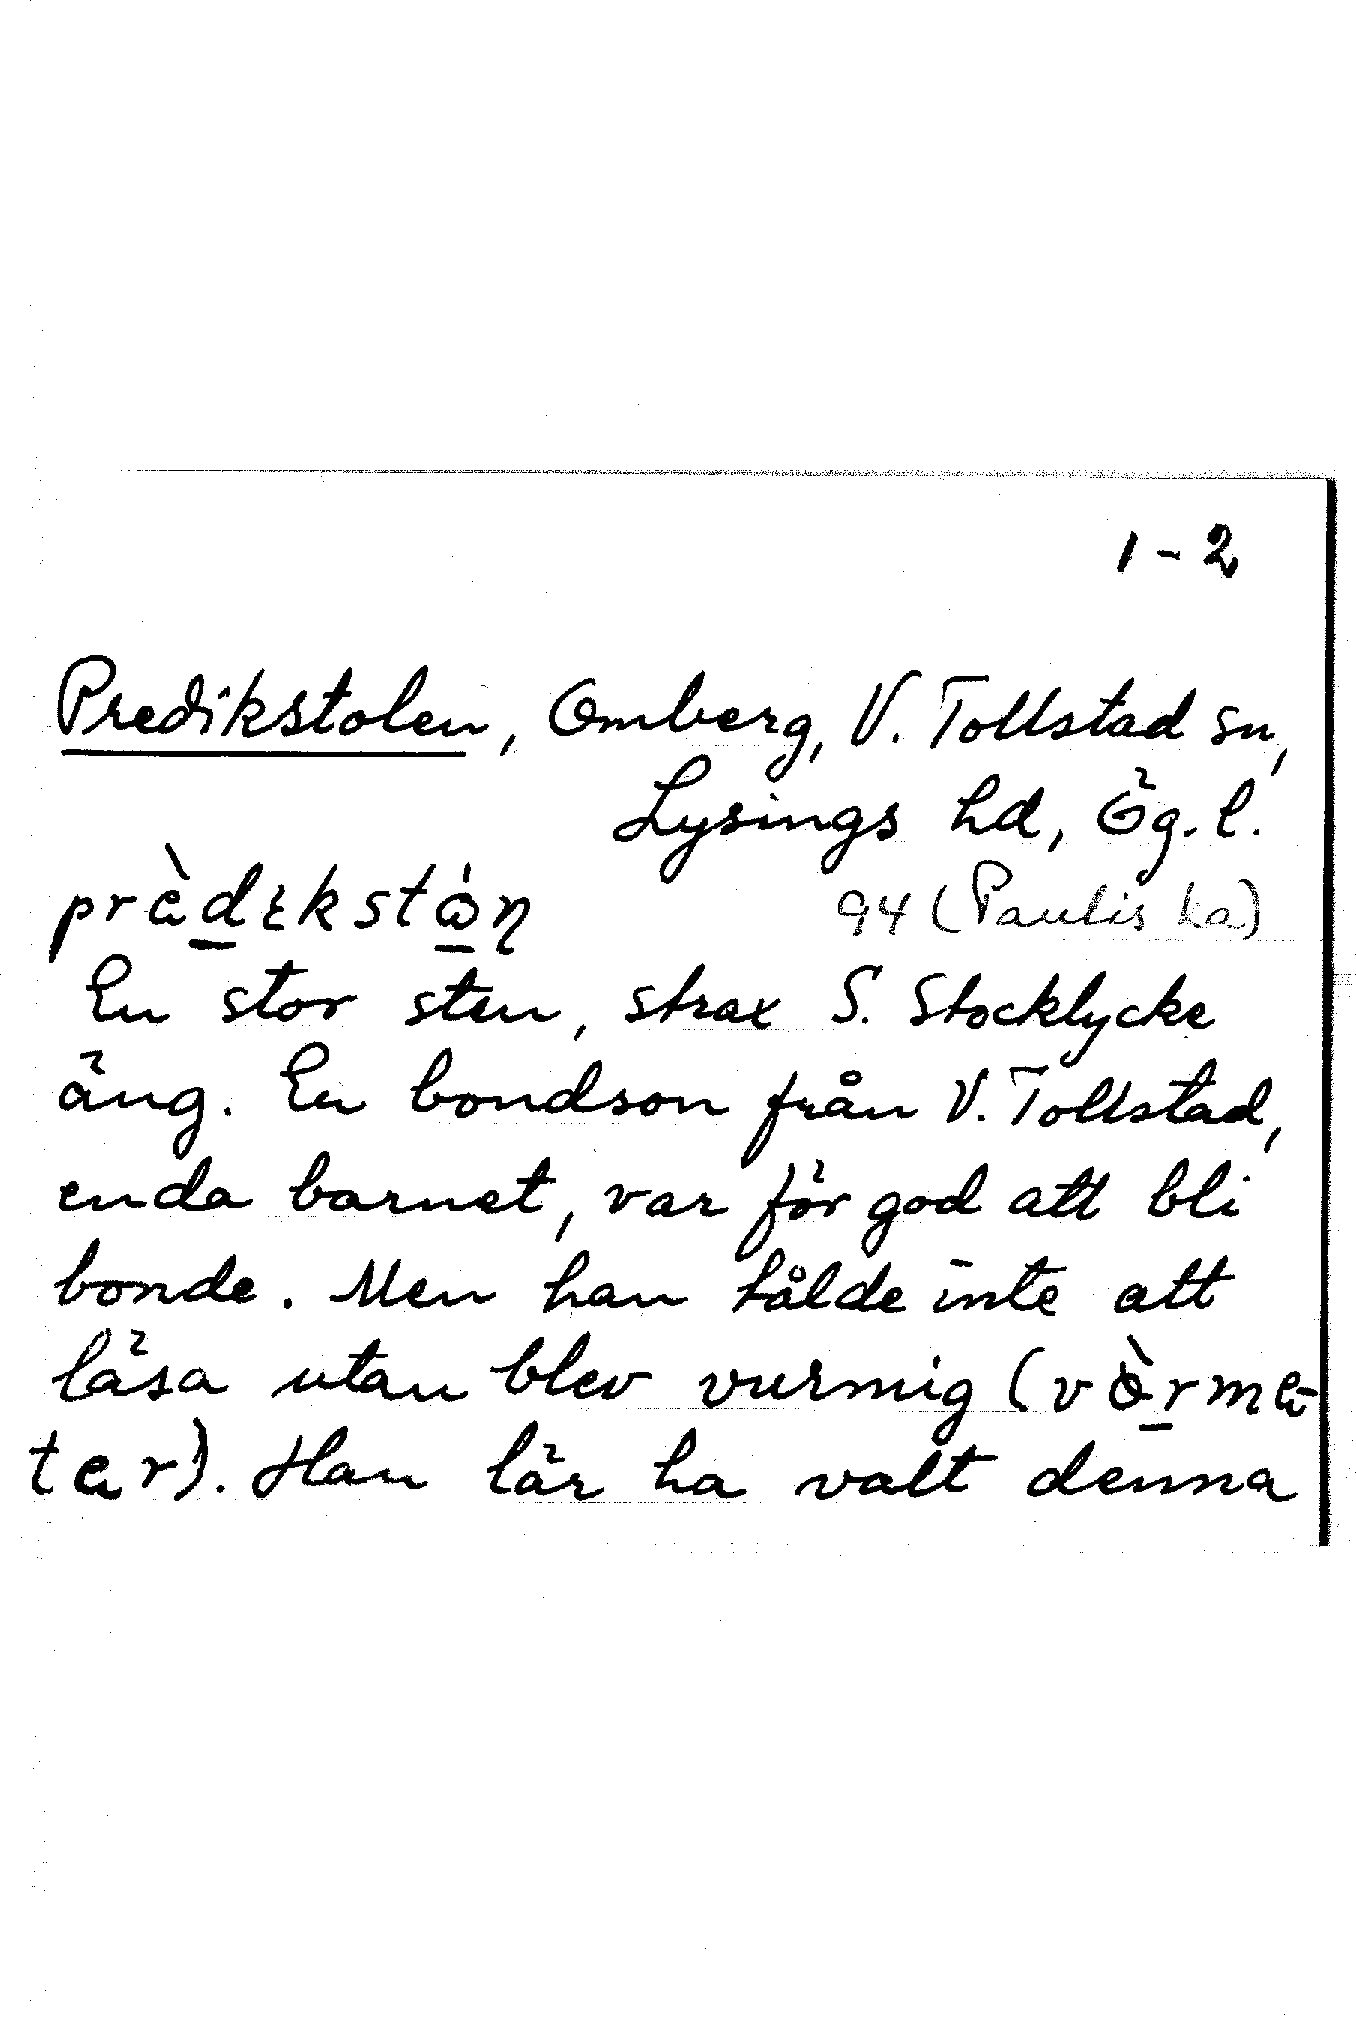 1-2
Predikstolen, Omberg, V. Tollstad sn,
Lysings hd, Ög.l.
prèdɩkstȯ̀n
94 (Paulis ka)
En stor sten, strax S. Stocklycke
äng. En bondson från V. Tollstad,
enda barnet, var för god att bli
bonde. Men han tålde inte att
läsa utan blev vurmig (vòrma-
tar). Han lär ha valt denna